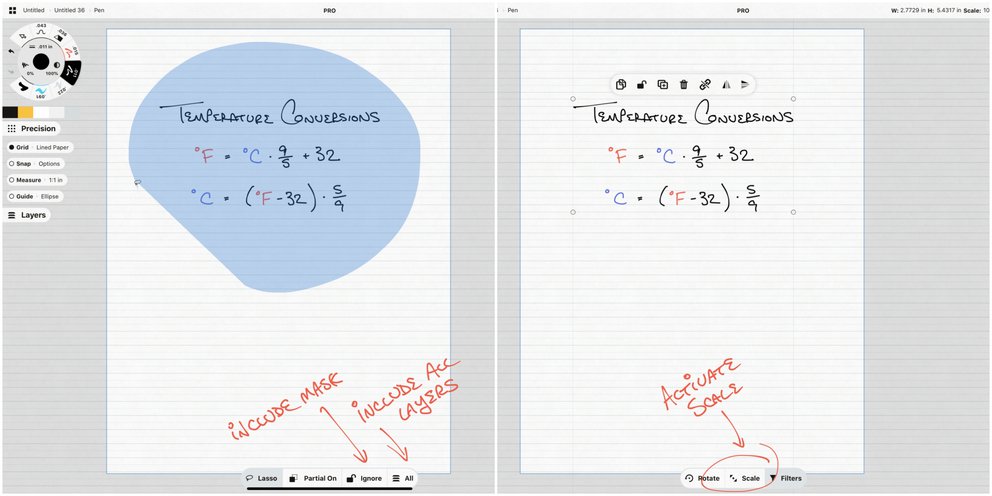 Untitled Untitled 36 Pen
PRO
.043
.036
.011 in
.015
0% 100%
.011
.691
.022
Precision
Grid Lined Paper
Snap Options
Measure 1:1 in
Guide Ellipse
Layers
TEMPERATURE CONVERSIONS
°F = °C · 9/5 + 32
°C = (°F - 32) · 5/9
INCLUDE MASK
INCLUDE ALL
LAYERS
Lasso Partial On Ignore All
Pen
PRO
W: 2.7729 in H: 5.4317 in Scale: 10
TEMPERATURE CONVERSIONS
°F = °C · 9/5 + 32
°C = (°F - 32) · 5/9
ACTIVATE
SCALE
Rotate Scale Filters